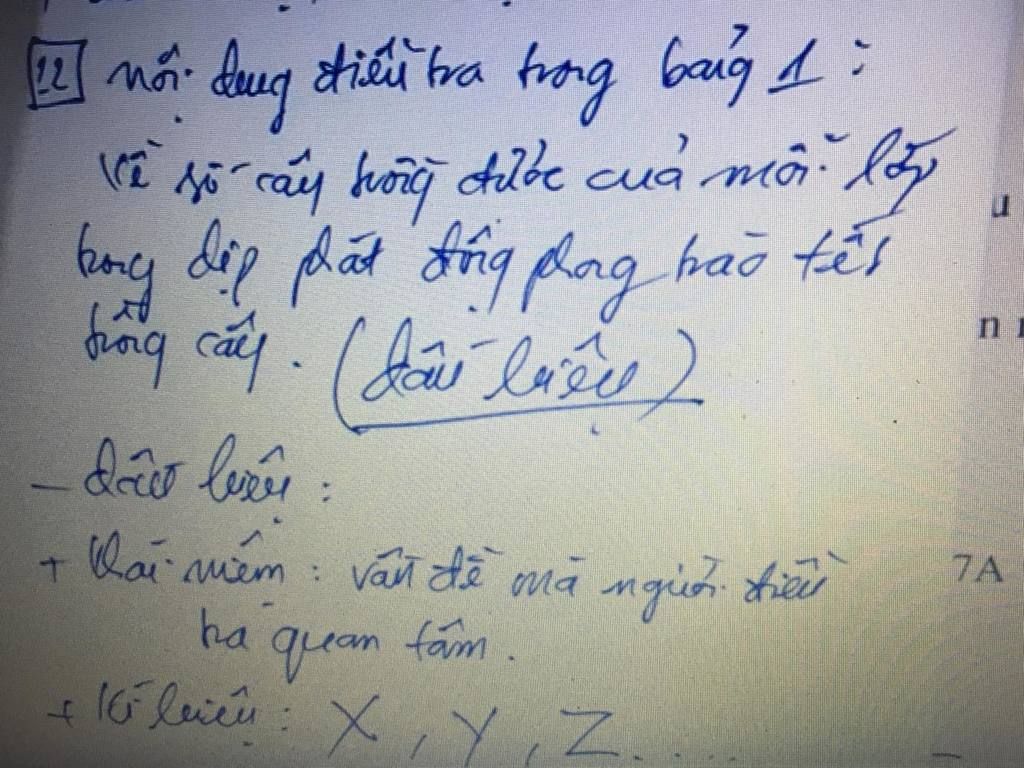 ?2 Nội dung điều tra trong bảng 1:
Về số cây trồng được của mỗi lớp
trong dịp phát động phong trào tết
trồng cây. (dấu hiệu)
- dấu hiệu:
+ Khái niệm: vấn đề mà người điều
tra quan tâm.
+ Kí hiệu: X, Y, Z....
u
n
7A